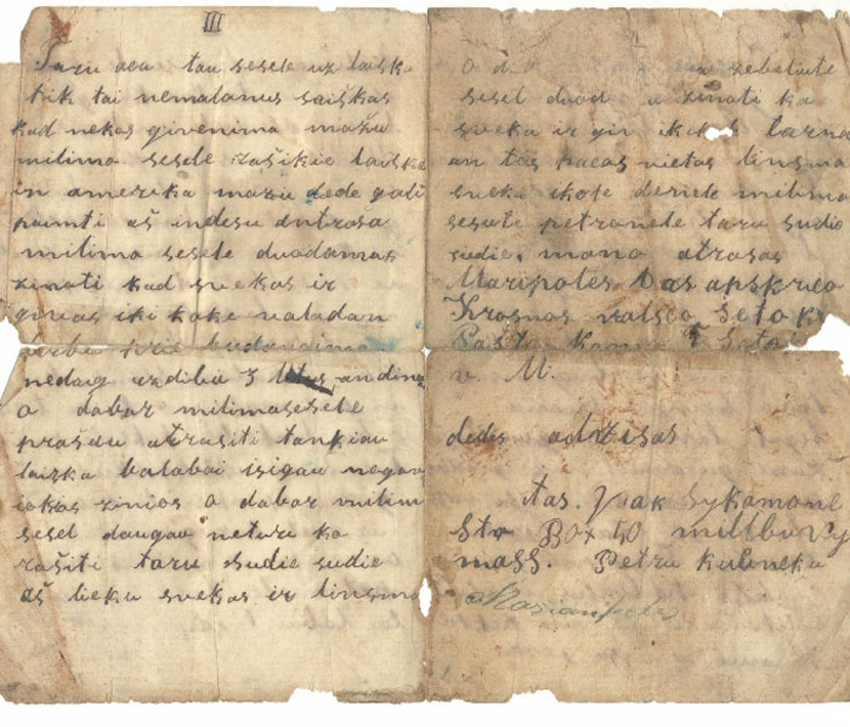 III
Taru acu tau sesele uz laiska
tik tai nemalanus saiškas
kad nekas givenima mažu
milima sesele rašikie laiška
in amerika mažu dede gali
paimti aš indesu antrasa
milima sesele duodamas
zinati kad svekas ir
givas iki kake valadan
darba
nedaug uzdibu 3 andina
o dabar milimasesele
prašau atrašiti tankiau
laizka balabai isigau negav
iokas zinios o dabar milim
sesel daugau neturu ko
rašiti taru sudie sudie
aš lieku svekas ir linsma
zebelute
sesel duod zinati ka
sveka ir giv larna
an tas pacas vietas linsma
sveka ikole deriele milima
sesute petranele taru sudio
sudie. mano atrasas
Maripoles apskrico
Krosnos valsco Seto k
Pasta
v. M.
dedes adrisas
Sykamone
Str Box 40 millbury
mass. Petru